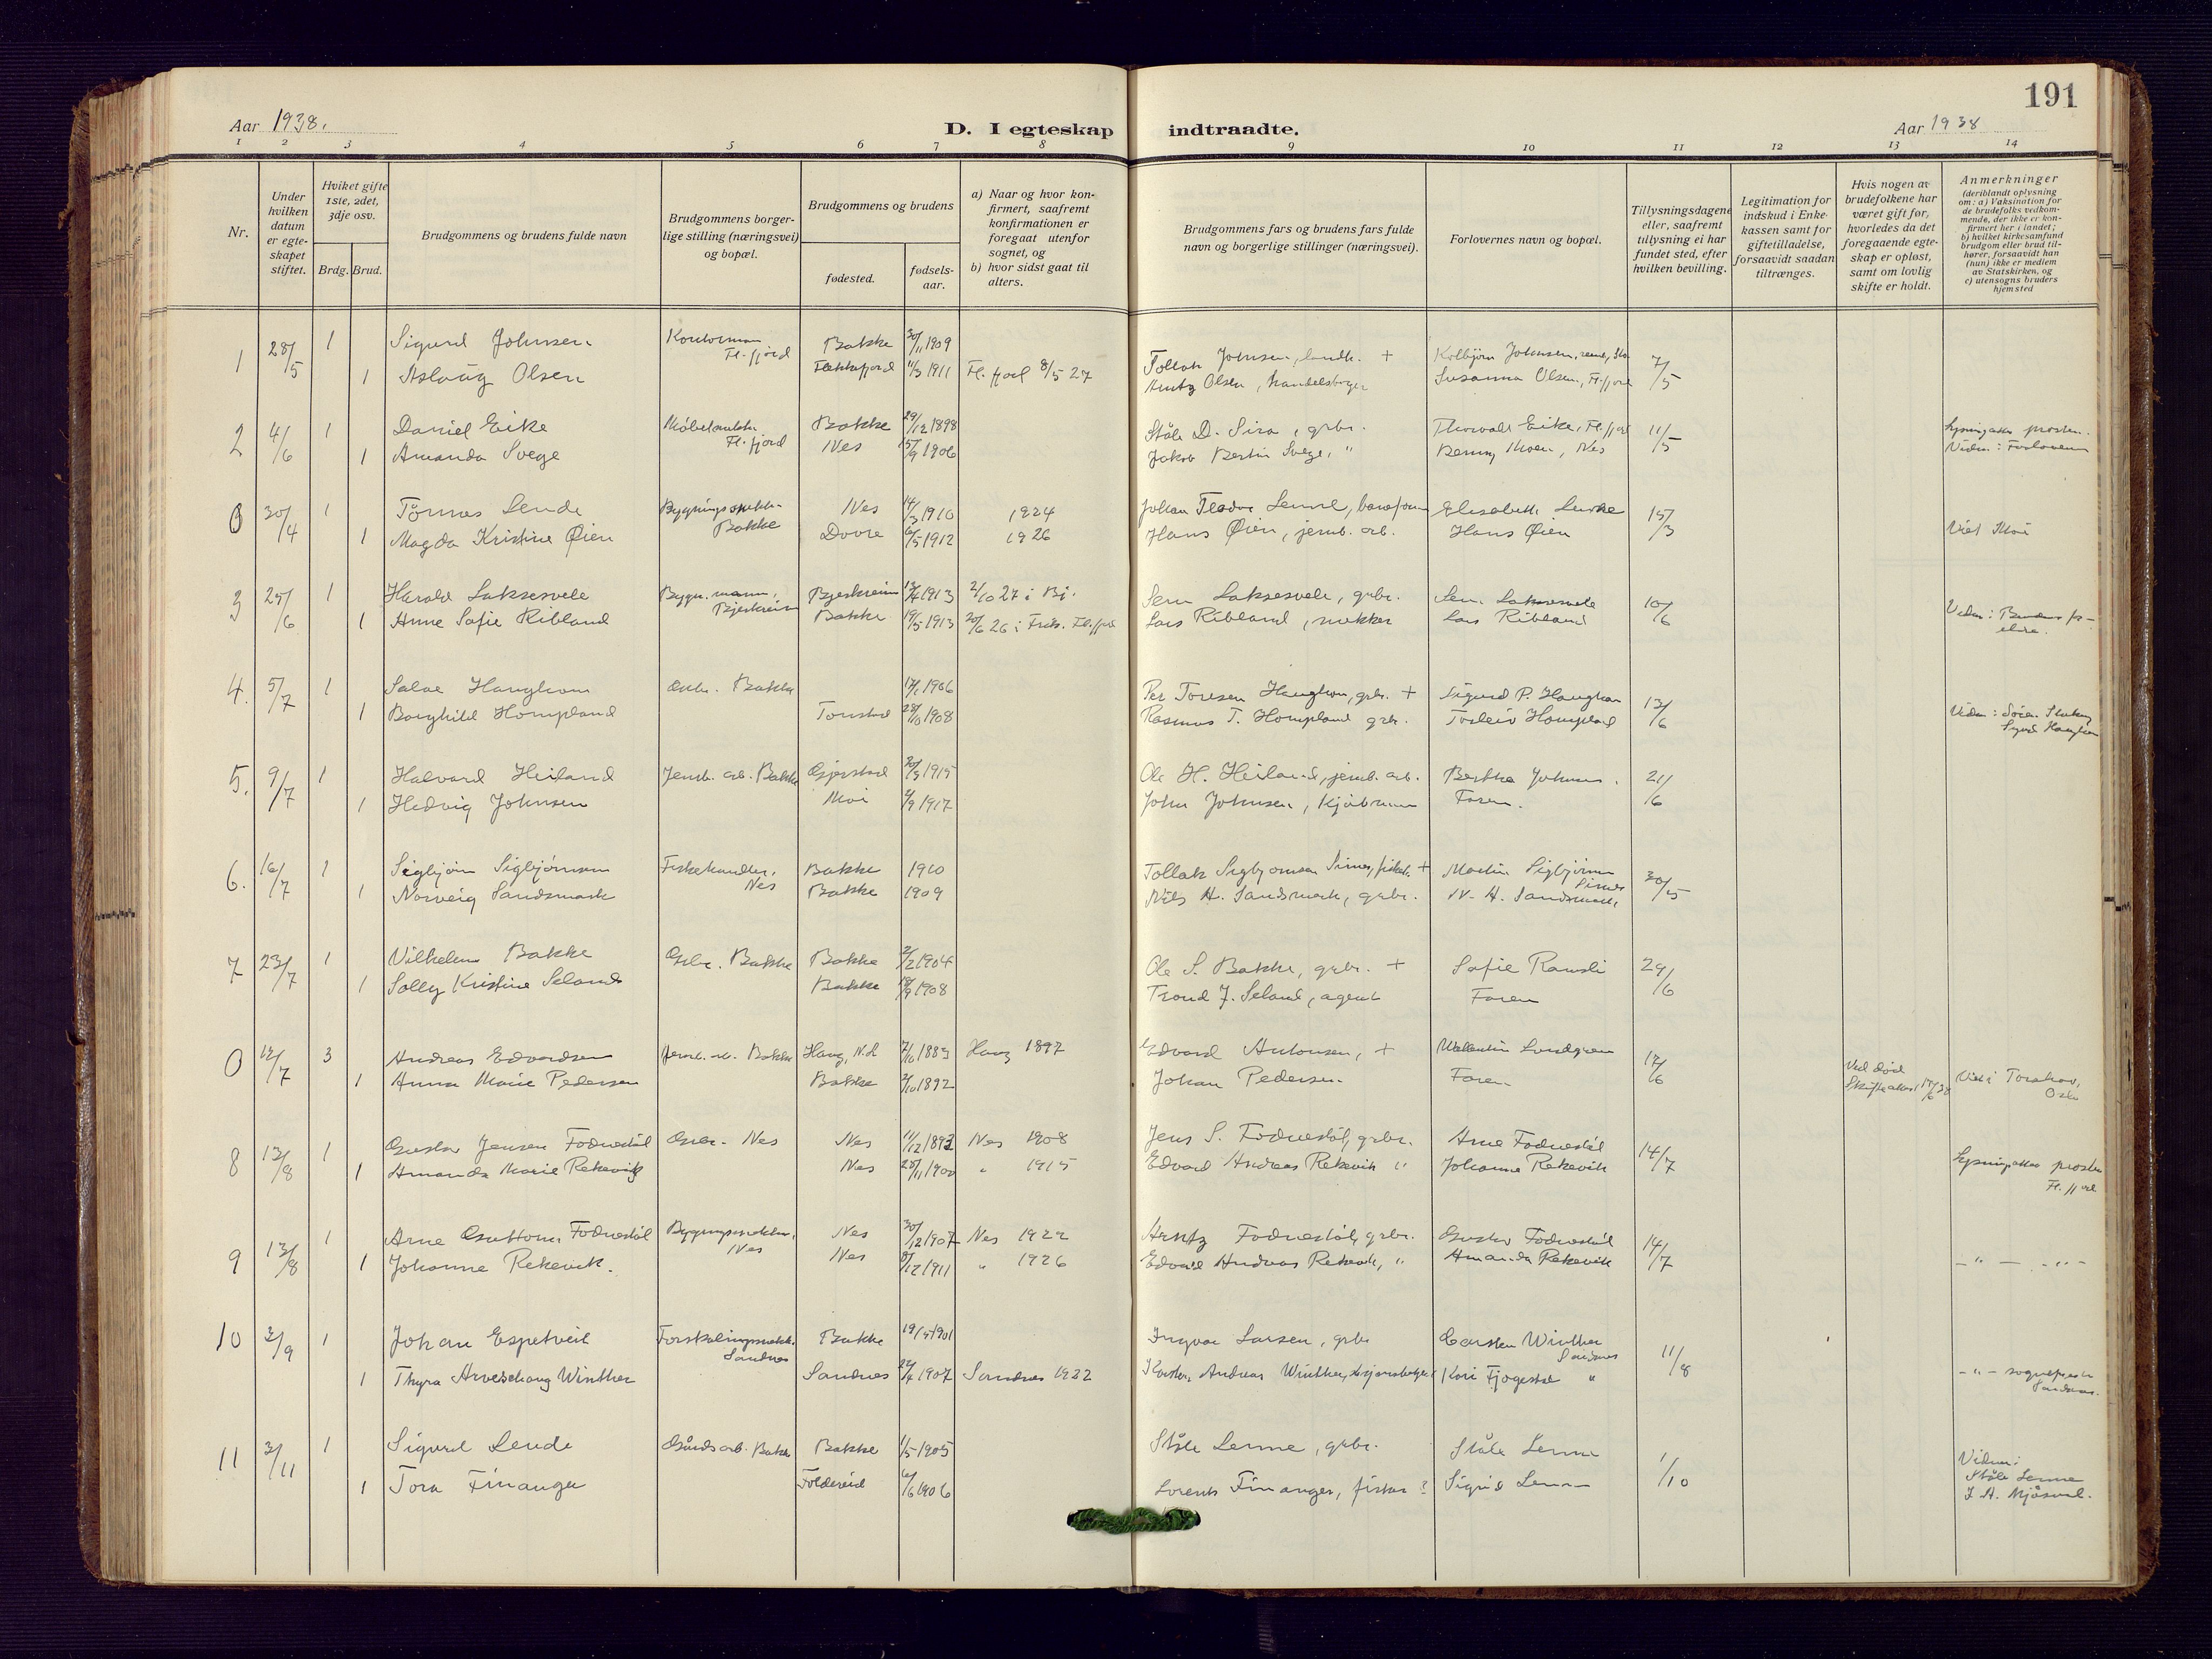 191
Aar 1938.
D. I egteskap indtraadte.
Aar 1938
1 2 3 4 5 6 7 8 9 10 11 12 13 14
Nr.
Under hvilken datum er egte-skapet stiftet.
Hviket gifte 1ste, 2det, 3dje osv.
Brdg. Brud.
Brudgommens og brudens fulde navn
Brudgommens borger-lige stilling (næringsvei) og bopæl.
Brudgommens og brudens
fødested.
fødsels-aar.
a) Naar og hvor kon-firmert, saafremt konfirmationen er foregaat utenfor sognet, og
b) hvor sidst gaat til alters.
Brudgommens fars og brudens fars fulde navn og borgerlige stillinger (næringsvei).
Forlovernes navn og bopæl.
Tillysningsdagene eller, saafremt tillysning ei har fundet sted, efter hvilken bevilling.
Legitimation for indskud i Enke-kassen samt for giftetilladelse, forsaavidt saadan tiltrænges.
Hvis nogen av brudefolkene har været gift før, hvorledes da det foregaaende egte-skap er opløst, samt om lovlig skifte er holdt.
Anmerkninger
(deriblandt oplysning om: a) Vaksination for de brudefolks vedkom-mende, der ikke er kon-firmert her i landet; b) hvilket kirkesamfund brudgom eller brud til-hører, forsaavidt han (hun) ikke er medlem av Statskirken, og c) utensogns bruders hjemsted
1 28/5 1 Sigurd Johnsen Kontorman Fl.fjord Bakke 30/11 1909 Tollak Johnsen, landh. + Kolbjørn Johnsen 7/5
1 Aslaug Olsen Flekkefjord 11/3 1911 Fl.fjord 8/5 27 Arntz Olsen, handelsborger Susanna Olsen, Fl.fjord
2 4/6 1 Daniel Eike Fl.fjord Bakke 29/12 1898 Ståle D. Sira, grbr. Thorvald Eike, Fl.fjord 11/5 prosten.
1 Amanda Svege Nes 15/9 1906 Jakob Bertin Svege, " Benny Moen, Nes Vidn: Forloverne
0 30/4 1 Tønnes Lende Bakke Nes 14/3 1910 1924 Johan Teodor Elisabeth 15/3
1 Magda Kristine Øien Dovre 6/5 1912 1926 Hans Øien, jernb. arb. Hans Øien Viet Moi
3 25/6 1 Harald Laksesvele Bygn.mann, Bjerkreim Bjerkreim 13/4 1913 2/10 27 i Bj. Sem Laksesvele, grbr. Sem Laksesvele 10/6
1 Anne Sofie Ribland Bakke 19/5 1913 20/6 26 i Lars Ribland, Lars Ribland Vidn: Brudens for-eldre.
4. 5/7 1 Salve Haughom Grbr. Bakke 17/1 1906 Per Toresen Haughom, grbr. + Sigurd P. Haughom 13/6
1 Borghild Hompland Tonstad 28/10 1908 Rasmus T. Hompland grbr. Torleiv Hompland Vidn:
5. 9/7 1 Halvard Heiland Jernb. arb. Bakke Gjerstad 20/3 1915 Ole H. Heiland, jernb. arb. Bertha Johnsen. 21/6
1 Hedvig Johnsen Moi 4/9 1917 John Johnsen, Faren.
6. 16/7 1 Sigbjørn Sigbjørnsen Fiskehandler, Nes Bakke 1910 Tollak Sigbjørnsen Sirnes, + Martin Sigbjørnsen Sirnes 30/5
1 Norveig Sandsmark Bakke 1909 Nils H. Sandsmark, grbr. N. H. Sandsmark,
7 23/7 1 Vilhelm Bakke Grbr. Bakke Bakke 2/2 1904 Ole S. Bakke, grbr. + Sofie Rawsli 29/6
1 Solly Kristine Seland Bakke 18/9 1908 Trond J. Seland, agent Faren
0 12/7 3 Andreas Edvardsen Jernb. arb. Bakke Haug, 7/10 1883 Haug 1897 Edvard Antonsen, + Lundgren 17/6
1 Anna Marie Pedersen Bakke 2/10 1892 Johan Pedersen Faren Ved død Viet i Torshov, Oslo
8 13/8 1 Gustav Jensen Fodnestøl Grbr. Nes Nes 11/12 1893 Nes 1908 Jens S. Fodnestøl, grbr. Arne Fodnestøl 14/7
1 Amanda Marie Rekevik Nes 28/11 1900 " 1915 Edvard Andreas Rekevik " Johanne Rekevik prosten Fl.fjord
9 13/8 1 Arne Fodnestøl Nes Nes 30/12 1907 Nes 1922 Arntz Fodnestøl, grbr. Gustav Fodnestøl 14/7
1 Johanne Rekevik. Nes 8/12 1911 " 1926 Edvard Andreas Rekevik, " Amanda Rekevik - " - - " -
10 3/9 1 Johan Espetveit Sandnes Bakke 19/5 1901 Ingvar Larsen, grbr. Carsten Winther Sandnes 11/8
1 Thyra Winther Sandnes 24/4 1907 Sandnes 1922 Karsten Andreas Winther, Kari Fjogestad " - " - sogneprest Sandnes.
11 3/11 1 Sigurd Lende Gårdsarb. Bakke Bakke 1/5 1905 Ståle Lenne, grbr. Ståle Lenne 1/10
1 Tora Finanger Foldereid 6/6 1906 Lorents Finanger, fisker ? Sigrid Lenne Vidner: Ståle Lenne